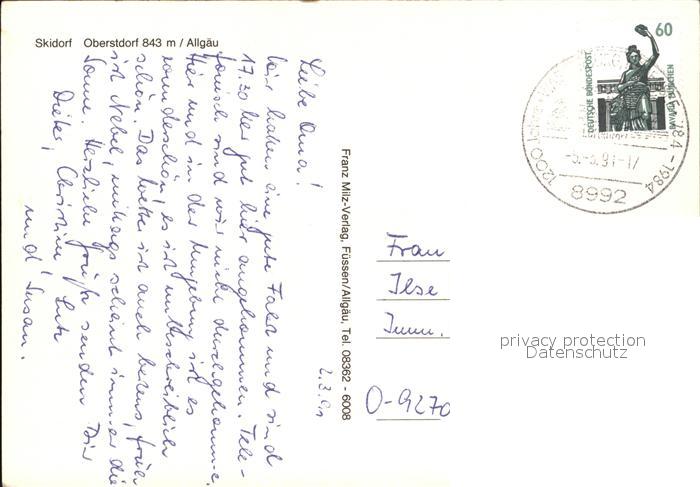 Skidorf Oberstdorf 843 m / Allgäu
Liebe Oma!
Wir haben eine gute Fahrt und sind
17.30 hier gut hier angekommen. Tele-
fonisch sind wir nicht durchgekomme.
Hier und in der Umgebung ist es
wunderschön, es ist unbeschreiblich
schön. Das Wetter ist auch bestens, früh
ist Nebel, mittags scheint immer die
Sonne. Herzliche Grüße senden Dir
Dieter, Christine, Lutz
und Susan.
2.3.91
Franz Milz-Verlag, Füssen/Allgäu, Tel. 08362 - 6008
60
DEUTSCHE BUNDESPOST
BAVARIA MÜNCHEN
1200 784 - 1984
-5.-3.91-17
8992
Frau
Ilse
Imm.
O-9270
privacy protection
Datenschutz